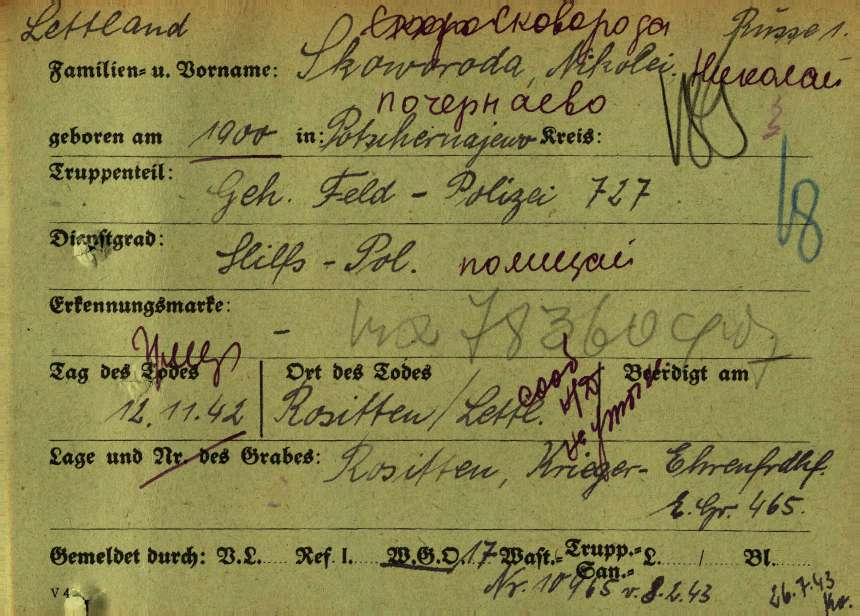 Lettland Сковорода Russe 1.
Familien- u. Vorname: Skoworoda, Nikolei. Николай
почернаево
geboren am 1900 in: Potschernajewo Kreis:
Truppenteil: Geh. Feld - Polizei 727
Dienstgrad: Hilfs - Pol. полицай
18
Erkennungsmarke: -
78360
Tag des Todes Ort des Todes Beerdigt am
12.11.42 Rositten/Lettl.
Lage und Nr. des Grabes: Rositten, Krieger- Ehrenfrdhf.
E. Gr. 465.
Gemeldet durch: V.L. Ref. I. W.G.O. 17 Wast.- Trupp.- San.- L. / Bl.
Nr. 10965 v. 8.2.43 26.7.43
V 4